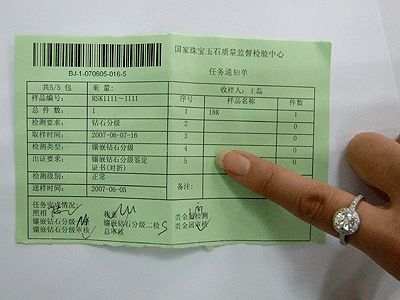 国家珠宝玉石质量监督检验中心
BJ-1-070605-016-5
任务通知单
共5/5 包 重量:
收样人:王磊
样品编号: RSK1111~1111
序号 样品名称 件数
总件数: 1
1 18K 1
检测要求: 钻石分级
2 0
取样时间: 2007-06-07-16
3 0
检测类型: 镶嵌钻石分级
4 0
出证要求: 镶嵌钻石分级鉴定证书(对折)
5 0
检测级别: 正常
送样时间: 2007-06-05
备注:
任务完成情况:
照相
贵金属检测
镶嵌钻石分级
镶嵌钻石分级二检
贵金属审核
镶嵌钻石分级审核
总审核